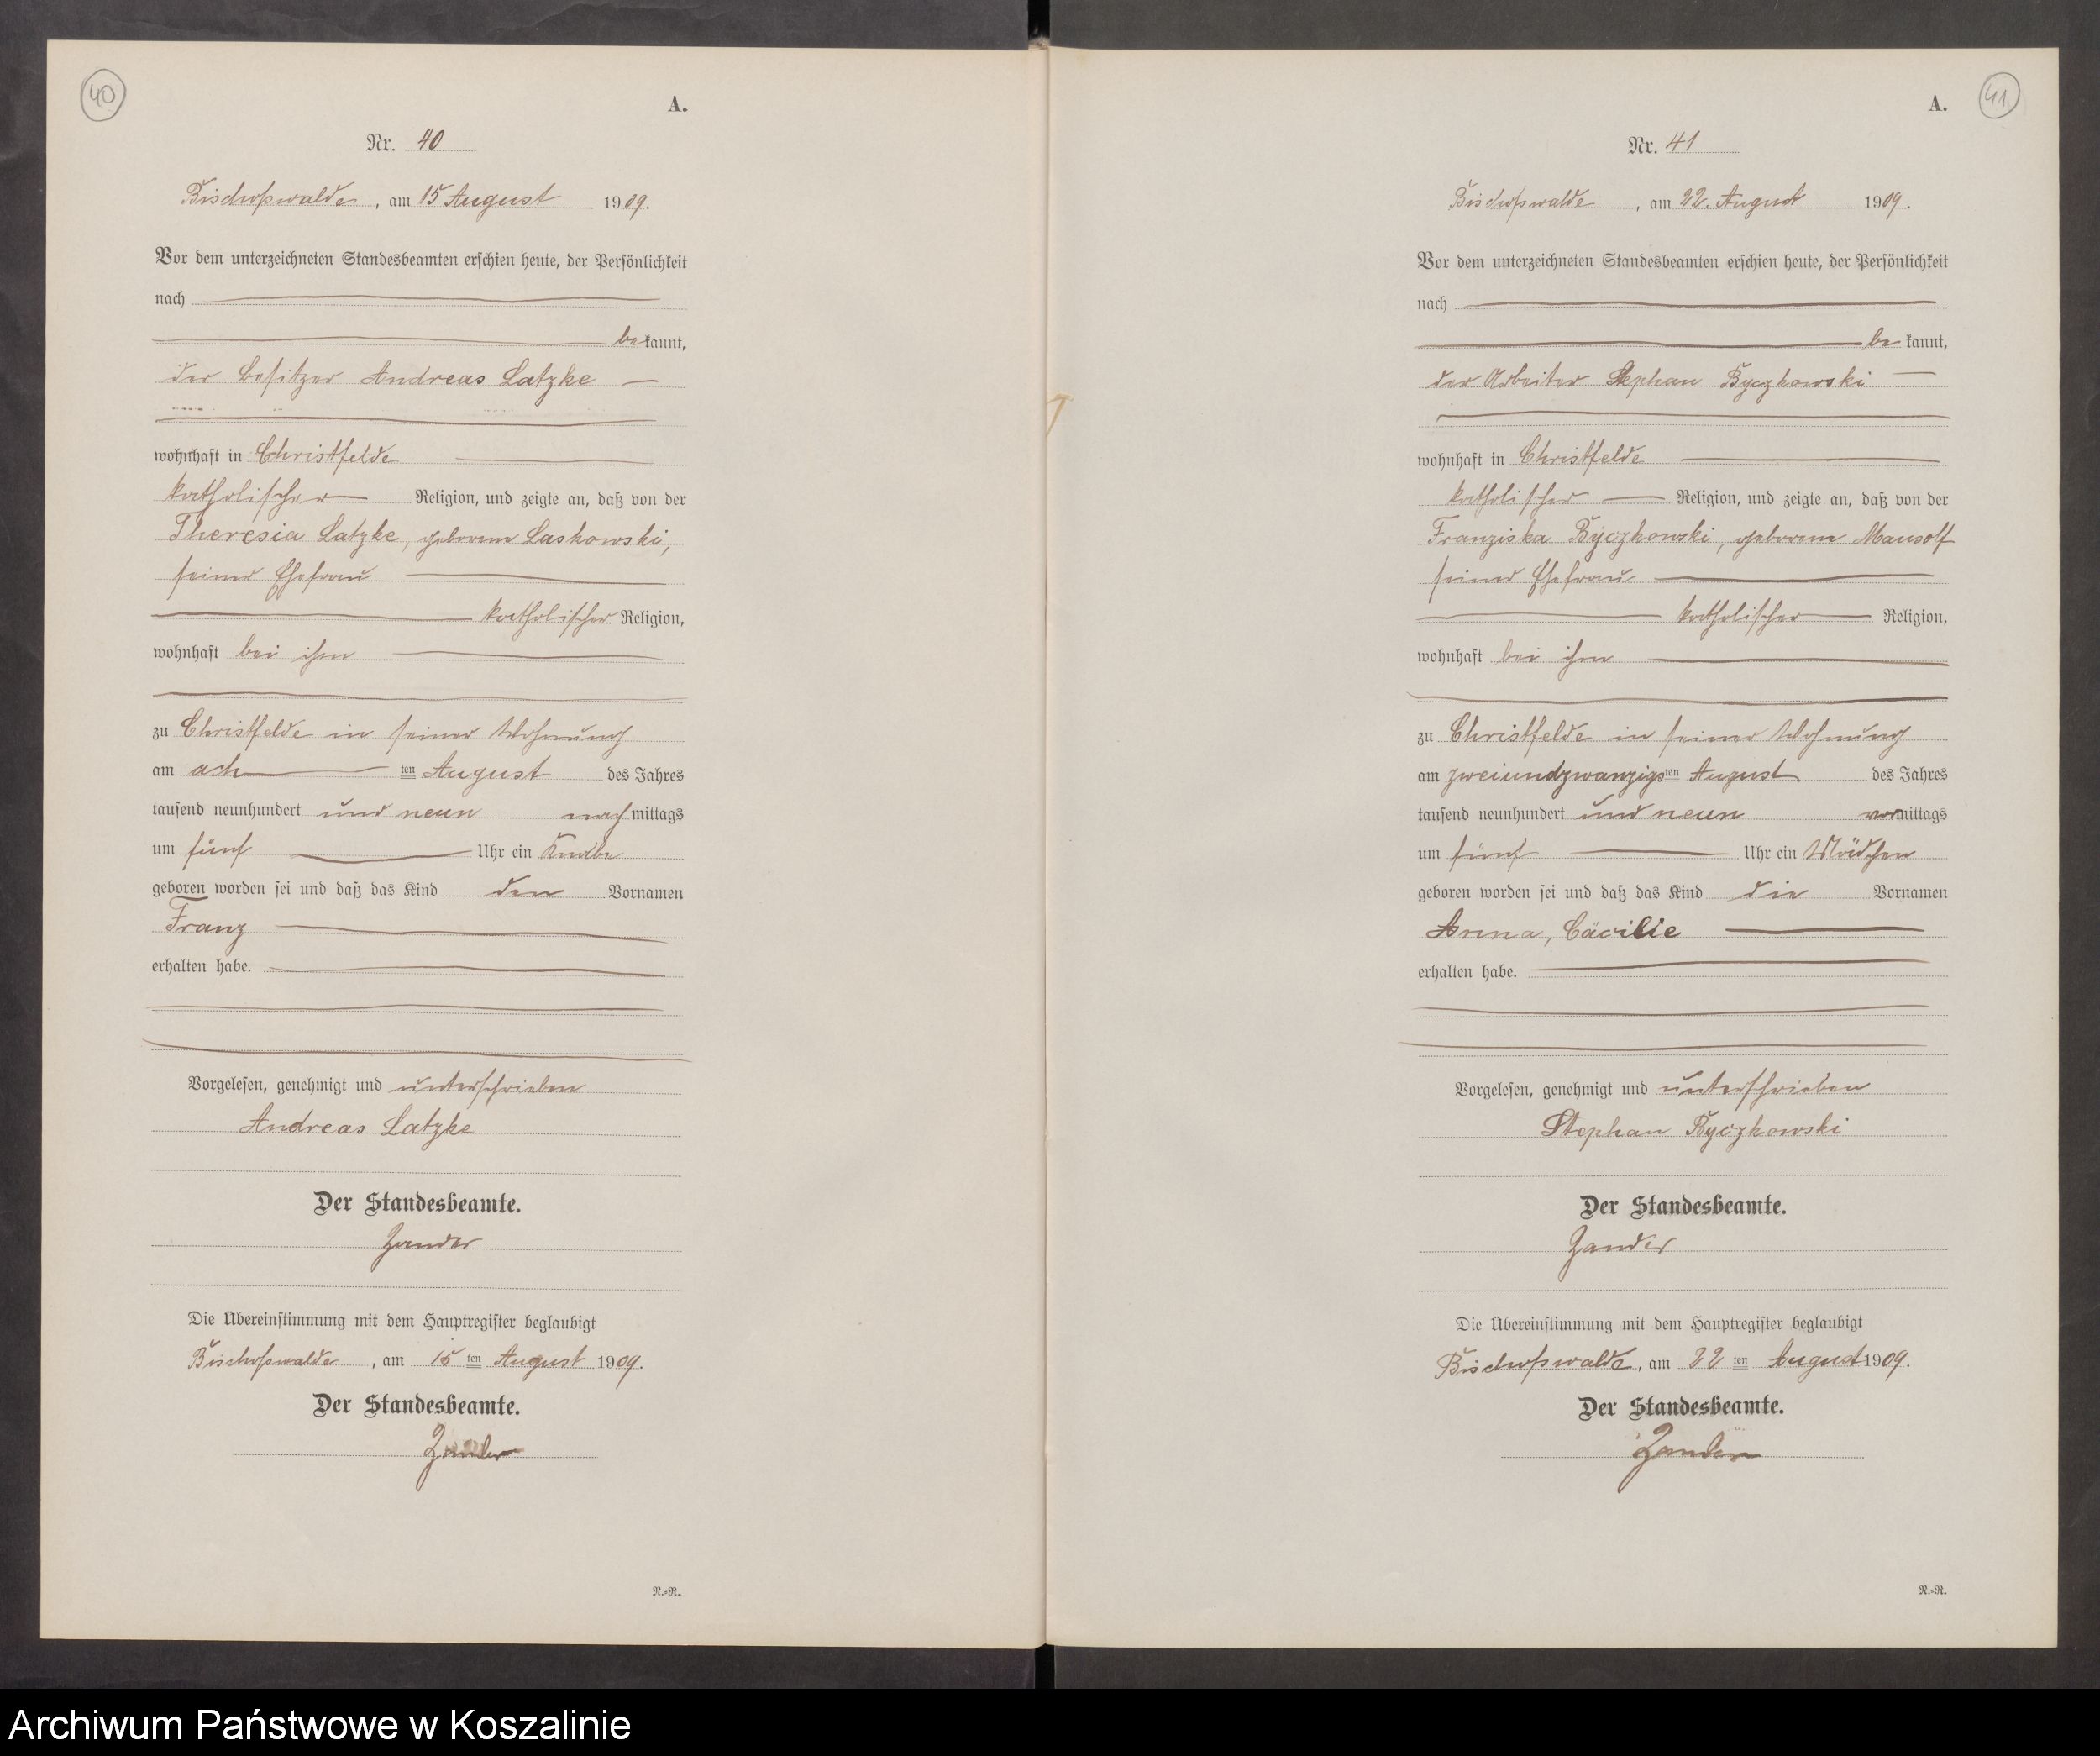 40
A.
Nr. 40
Bischofswalde, am 15 August 1909.
Vor dem unterzeichneten Standesbeamten erschien heute, der Persönlichkeit
nach
bekannt,
der Besitzer Andreas Latzke
wohnhaft in Christfelde
katholischer Religion, und zeigte an, daß von der
Theresia Latzke, geborene Laskowski,
seiner Ehefrau
katholischer Religion,
wohnhaft bei ihm
zu Christfelde in seiner Wohnung
am ach ten August des Jahres
tausend neunhundert und neun nachmittags
um fünf Uhr ein Knabe
geboren worden sei und daß das Kind den Vornamen
Franz
erhalten habe.
Vorgelesen, genehmigt und unterschrieben
Andreas Latzke
Der Standesbeamte.
Zander
Die Übereinstimmung mit dem Hauptregister beglaubigt
Bischofswalde, am 15ten August 1909.
Der Standesbeamte.
Zander
N.=R.
A.
41
Nr. 41
Bischofswalde, am 22. August 1909.
Vor dem unterzeichneten Standesbeamten erschien heute, der Persönlichkeit
nach
bekannt,
der Arbeiter Stephan Byczkowski
wohnhaft in Christfelde
katholischer Religion, und zeigte an, daß von der
Franziska Byczkowski, geborene Mausolf
seiner Ehefrau
katholischer Religion,
wohnhaft bei ihm
zu Christfelde in seiner Wohnung
am zweiundzwanzigsten August des Jahres
tausend neunhundert und neun vormittags
um fünf Uhr ein Mädchen
geboren worden sei und daß das Kind die Vornamen
Anna, Cäcilie
erhalten habe.
Vorgelesen, genehmigt und unterschrieben
Stephan Byczkowski
Der Standesbeamte.
Zander
Die Übereinstimmung mit dem Hauptregister beglaubigt
Bischofswalde, am 22ten August 1909.
Der Standesbeamte.
Zander
N.=R.
Archiwum Państwowe w Koszalinie